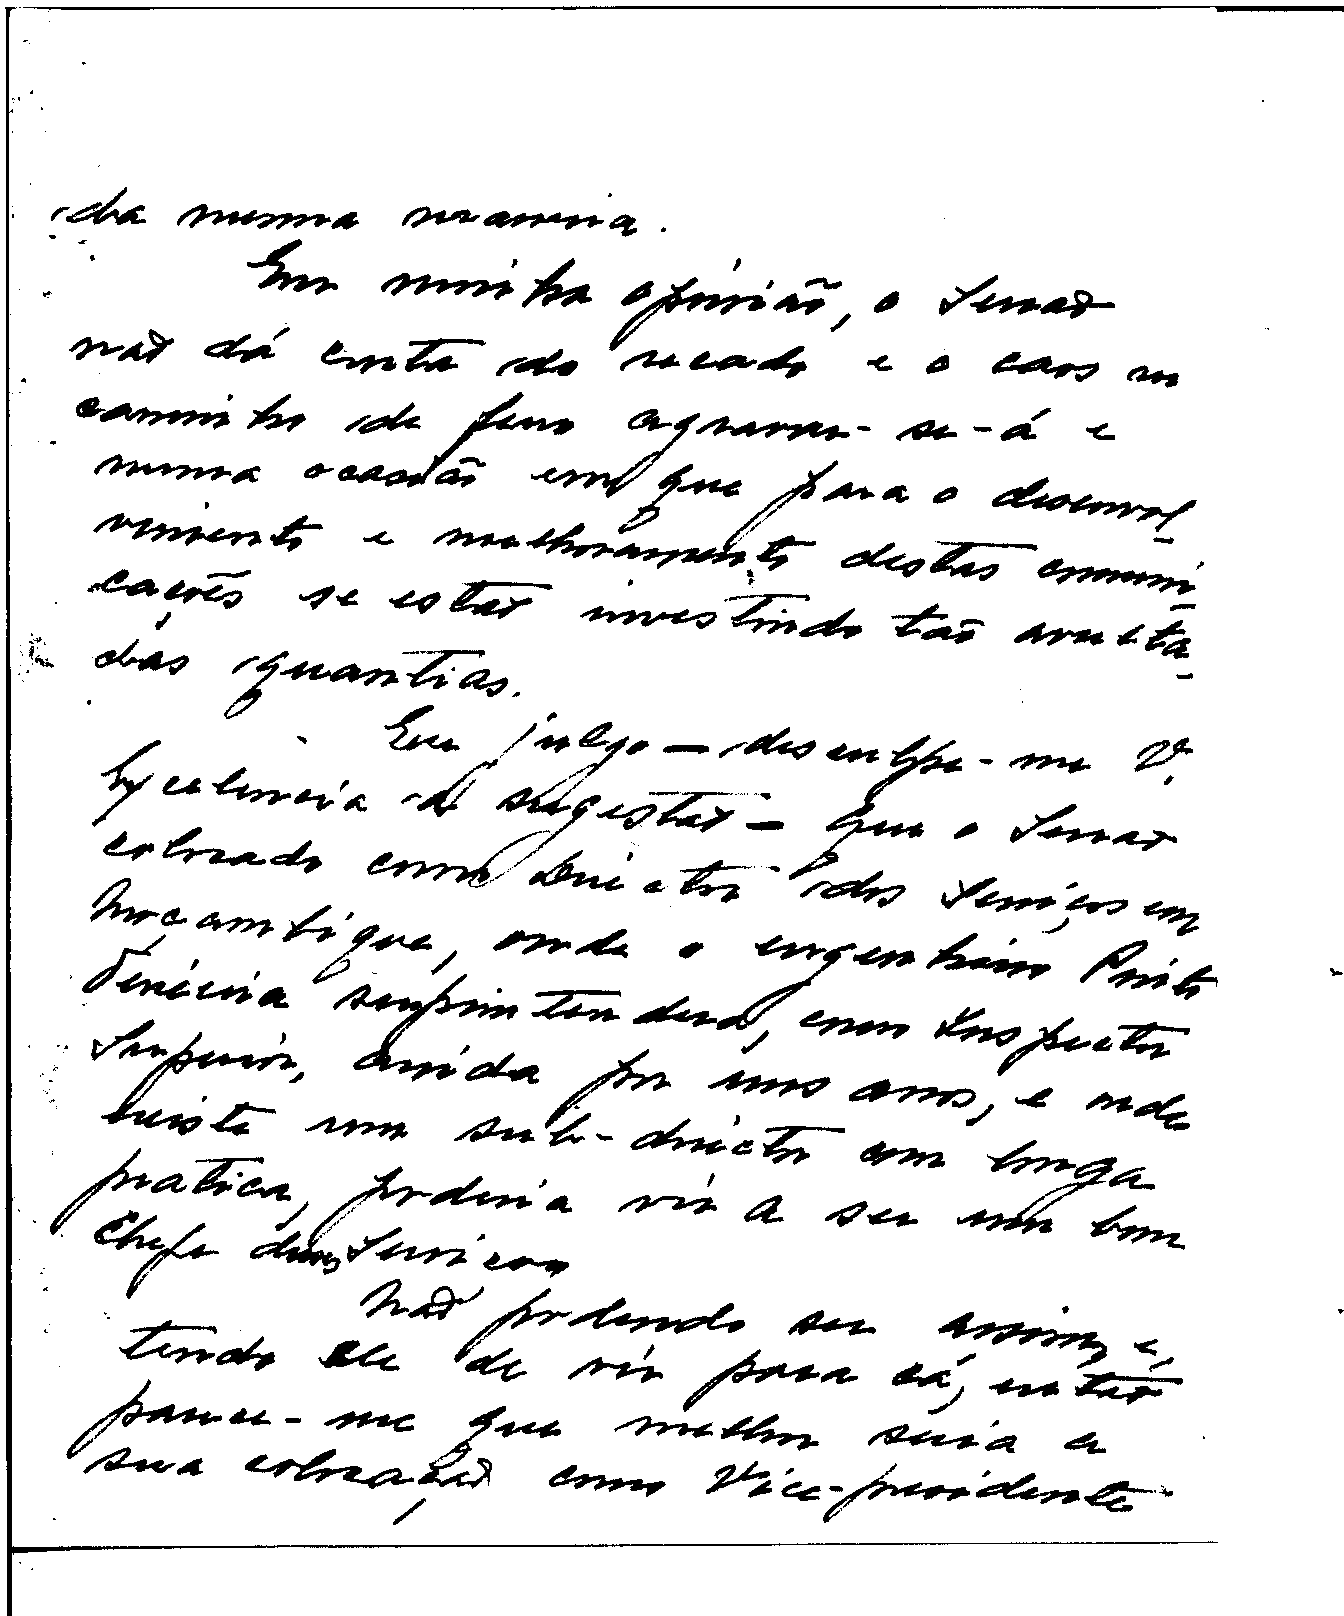 da mesma maneira.
Em minha opinião, o Senado
não dá conta do recado e o caos no
caminho de ferro agravar-se-á e
numa ocasião em que para o desenvol-
vimento e melhoramento destas comuni-
cações se estão investindo tão avulta-
das quantias.
Eu julgo — desculpe-me V.
Excelencia a sugestão — que o
colocado como Director dos Serviços em
Moçambique, onde o engenheiro Pinto
Teixeira superintenderá, como Inspector
Superior, ainda por uns anos, e onde
existe um sub-director com longa
pratica, poderia vir a ser um bom
Chefe duns Serviços
Não podendo ser assim, e,
tendo ele de vir para cá, então
parece-me que melhor seria a
sua colocação como Vice-presidente